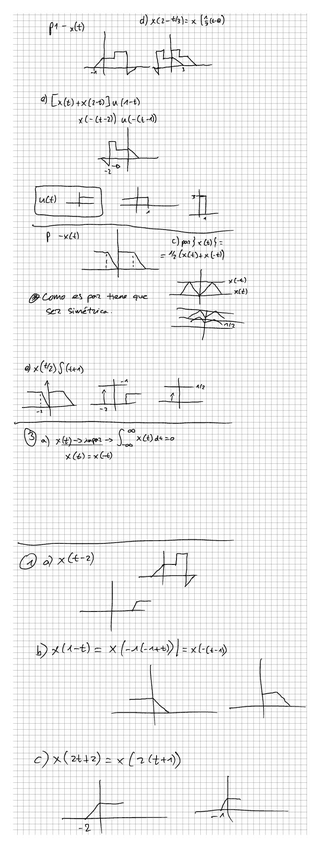 P1 - x(t)
d) x(2-t/3) =
-1
3
e) [x(t)+x(2-t)] u(1-t)
x(-(t-2)) u(-(t-1))
-2
u(t)
1
1
P -x(t)
c) par{x(t)} =
= 1/2 (x(t)+x(-t))
x(-t)
x(t)
Como es par tiene que
ser simétrica
1/2
e) x(t/2) ∫(t+1)
-1
1/2
-2
-2
3 a) x(t) → impar → ∫ ∞ -∞ x(t) dt = 0
x(t) = x(-t)
1 a) x(t-2)
b) x(1-t) = x(-1(-1+t)) | = x(-(t-1))
c) x(2t+2) = x(2(t+1))
-2
-1